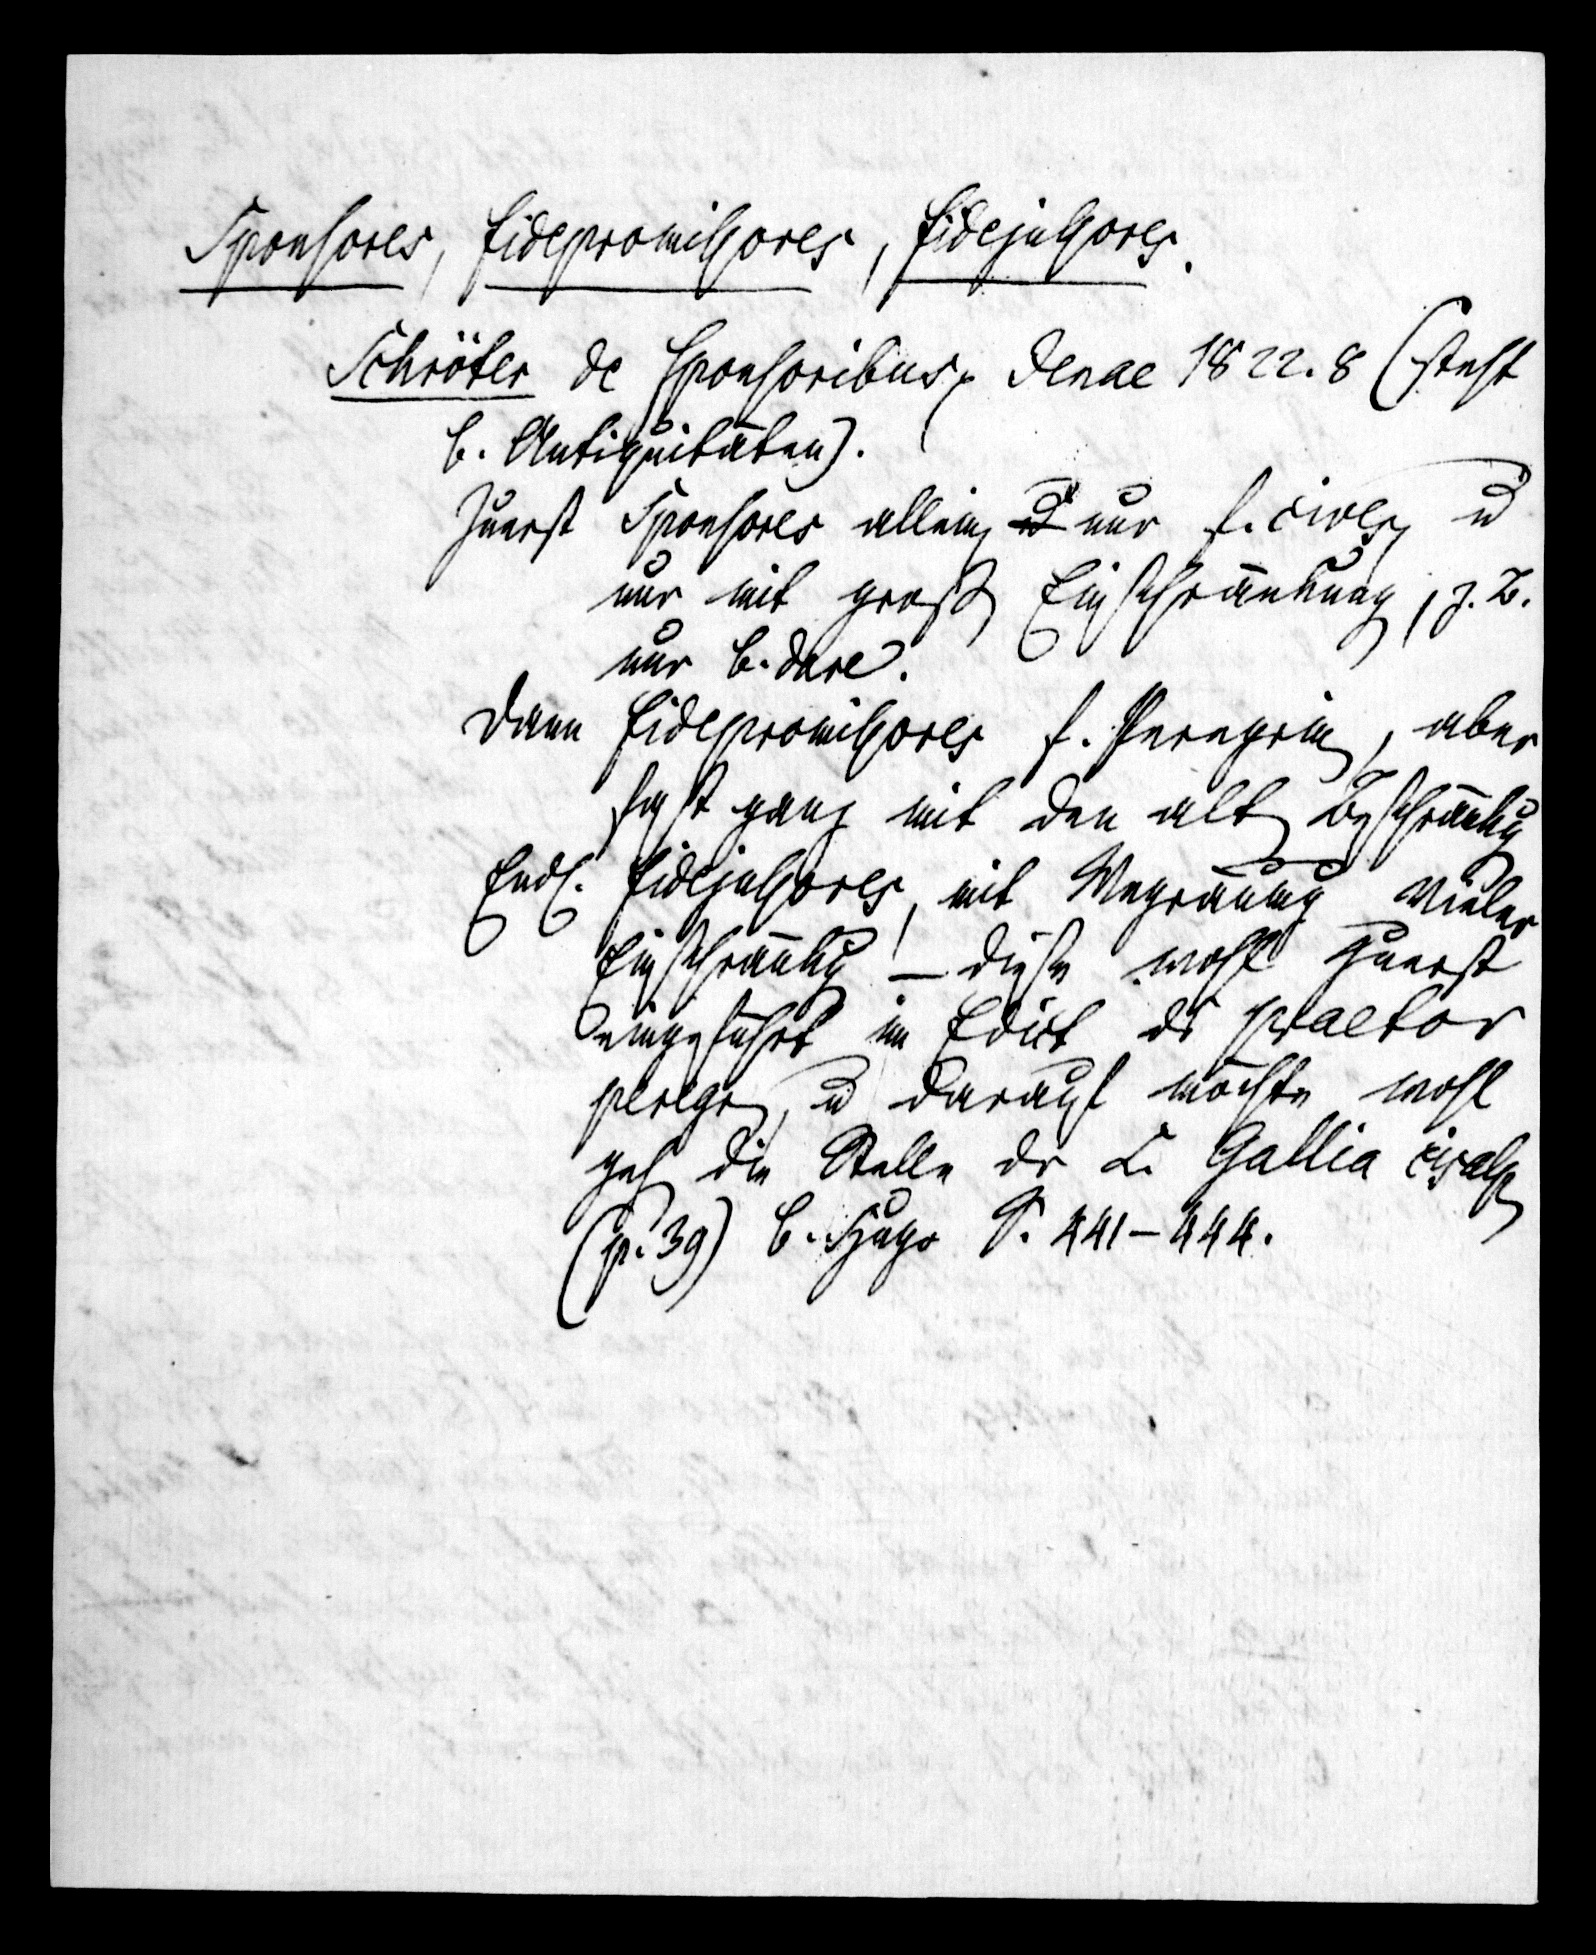 Sponsores, fidepromissores, fidejussores.
Schröter de sponsoribus, Jenae 1822. 8 (steht
b. Antiquitäten).
Zuerst Sponsores allein u nur f. cives, u
nur mit groß Einschränkung, z. B.
nur b. dare.
Dann fidepromissores f. Peregrin, aber
fast ganz mit den alt Beschränkg
Endl. fidejussores, mit Wegräumg vieler
Einschränkg – diese wohl zuerst
eingeführt im Edict ds praetor
peregr, u darauf möchte wohl
geh die Stelle dr L. Gallia cisalp
(p. 39) b. Hugo S. 441–444.